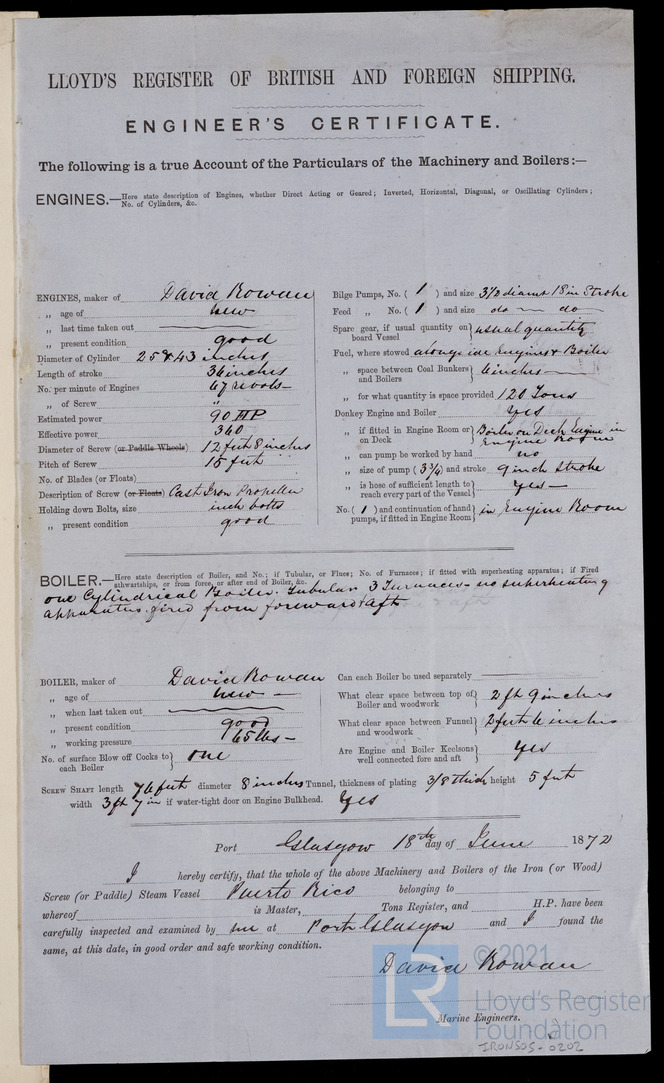 LLOYD'S REGISTER OF BRITISH AND FOREIGN SHIPPING.
ENGINEER'S CERTIFICATE.
The following is a true Account of the Particulars of the Machinery and Boilers:—
ENGINES.—Here state description of Engines, whether Direct Acting or Geared; Inverted, Horizontal, Diagonal, or Oscillating Cylinders;
No. of Cylinders, &c.
ENGINES, maker of David Rowan
„ age of new
„ last time taken out
„ present condition good
Diameter of Cylinder 25 & 43 inches
Length of stroke 36 inches
No. per minute of Engines 67 revols—
„ of Screw „
Estimated power 90 HP
Effective power 360
Diameter of Screw (or Paddle Wheels) 12 feet 8 inches
Pitch of Screw 15 feet
No. of Blades (or Floats)
Description of Screw (or Floats) Cast Iron Propeller
Holding down Bolts, size inch bolts
„ present condition good
Bilge Pumps, No. ( 1 ) and size 3½ diamr 18 in Stroke
Feed „ No. ( 1 ) and size do — do —
Spare gear, if usual quantity on
board Vessel usual quantity
Fuel, where stowed alongside Engines & Boiler
„ space between Coal Bunkers
and Boilers 6 inches
„ for what quantity is space provided 120 Tons
Donkey Engine and Boiler Yes
„ if fitted in Engine Room or
on Deck Boiler on Deck Engine in
Engine Room
„ can pump be worked by hand no
„ size of pump ( 3¾ ) and stroke 9 inch stroke
„ is hose of sufficient length to
reach every part of the Vessel yes —
No. ( 1 ) and continuation of hand
pumps, if fitted in Engine Room in Engine Room
BOILER.—Here state description of Boiler, and No.; if Tubular, or Flues; No. of Furnaces; if fitted with superheating apparatus; if Fired
athwartships, or from force, or after end of Boiler, &c.
one Cylindrical Boiler. Tubular 3 Furnaces - no superheating
apparatus. fired from foreward & aft
BOILER, maker of David Rowan
„ age of new —
„ when last taken out
„ present condition good
„ working pressure 65 lbs—
No. of surface Blow off Cocks to
each Boiler one
Can each Boiler be used separately
What clear space between top of
Boiler and woodwork 2 ft 9 inches
What clear space between Funnel
and woodwork 2 feet 6 inches
Are Engine and Boiler Keelsons
well connected fore and aft Yes
SCREW SHAFT length 76 feet diameter 8 inches Tunnel, thickness of plating 3/8 thick height 5 feet
width 3 ft 7 in if water-tight door on Engine Bulkhead. Yes
Port Glasgow 18th day of June 1872
I hereby certify, that the whole of the above Machinery and Boilers of the Iron (or Wood)
Screw (or Paddle) Steam Vessel Puerto Rico belonging to
whereof is Master, Tons Register, and H.P. have been
carefully inspected and examined by me at Port Glasgow and I found the
same, at this date, in good order and safe working condition.
David Rowan
Marine Engineers.
© 2021
LR Lloyd's Register
Foundation
IRON505-0202